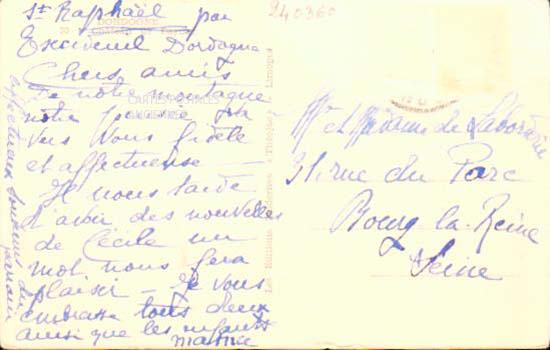 St. Raphaël par
Excideuil Dordogne
Chers amis
De notre montagne
notre pensée va
vers vous fidèle
et affectueuse —
Il nous tarde
d'avoir des nouvelles
de Cécile un
mot nous fera
plaisir — Je vous
embrasse tous deux
ainsi que les enfants
affectueux souvenirs du
240360
DORDOGNE
CARTES POSTALES
Théojac Limoges
Mr et Madame de Laborderie
31, rue du Parc
Bourg la Reine
Seine